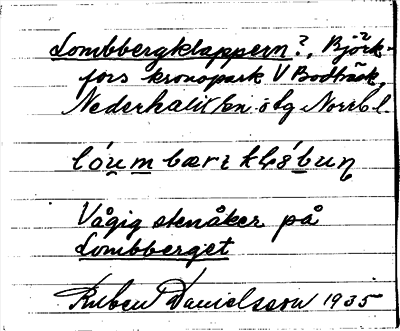 Lombbergklappern?, Björk-
fors kronopark V Bodträsk,
Nederkalix sn. o lg Norrb. l.
lóumbærɩ
Vågig stenåker på
Lombberget
Ruben Danielsson 1935